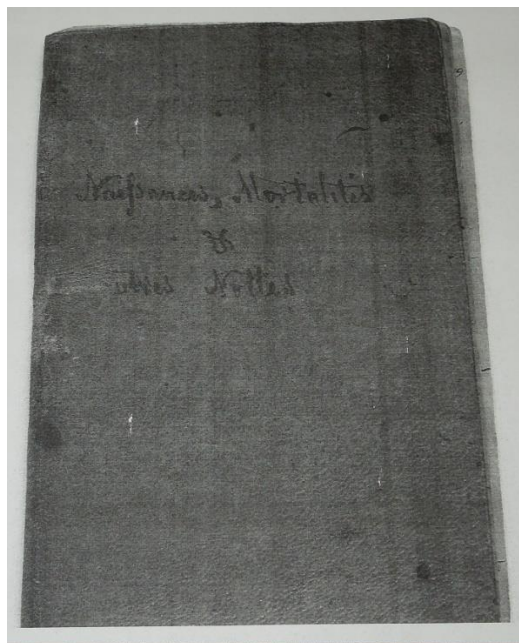 Naiſsances, Mortalités
&
autres Nottes